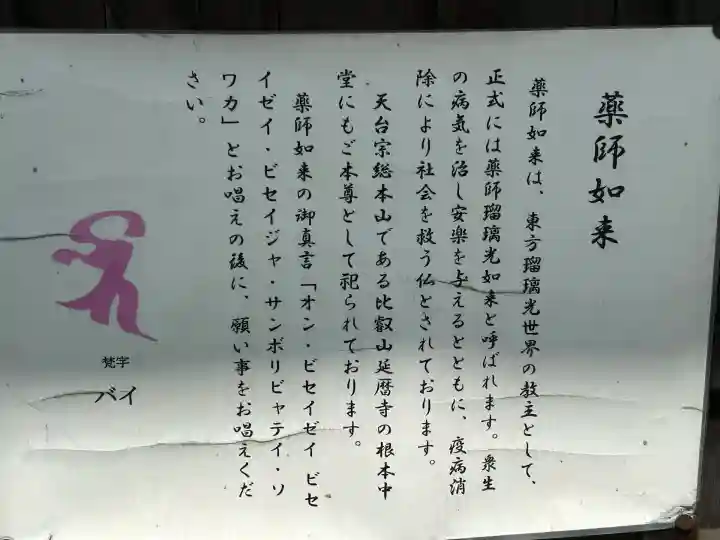 薬師如来
薬師如来は、東方瑠璃光世界の教主として、
正式には薬師瑠璃光如来と呼ばれます。衆生
の病気を治し安楽を与えるとともに、疫病消
除により社会を救う仏とされております。
天台宗総本山である比叡山延暦寺の根本中
堂にもご本尊として祀られております。
薬師如来の御真言「オン・ビセイゼイ ビセ
イゼイ・ビセイジャ・サンボリビャテイ・ソ
ワカ」とお唱えの後に、願い事をお唱えくだ
さい。
梵字
バイ